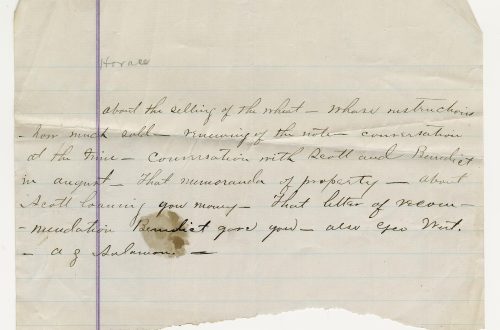 Horace
about the selling of the wheat — whose instructions
- how much sold — renewing of the note — conversation
at the time — conversation with Scott and Benedict
in august — That memoranda of property — about
Scott loaning you money — That letter of recom-
-mendation Benedict gave you — also Geo West.
- a g Salamon —